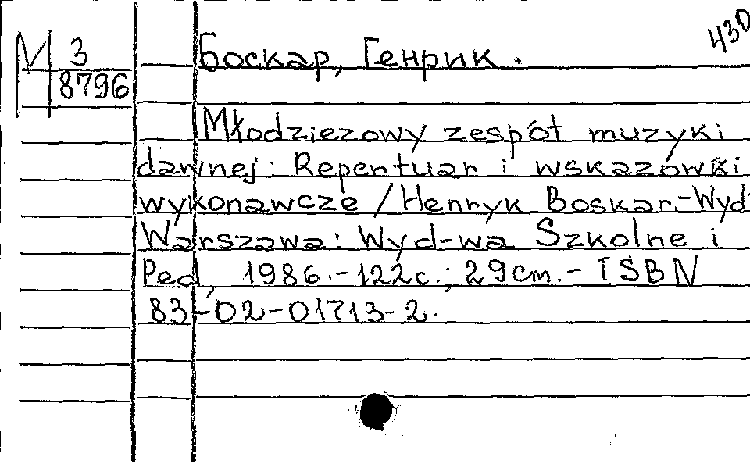 430
М 3
8796
Боскар, Генрик.
Młodzieżowy zespół muzyki
dawnej: Repertuar i wskazówki
wykonawcze / Henryk Boskar.-Wyd
Warszawa: Wyd-wa Szkolne i
Ped, 1986.-122c.; 29cm.- ISBN
83-02-01713-2.